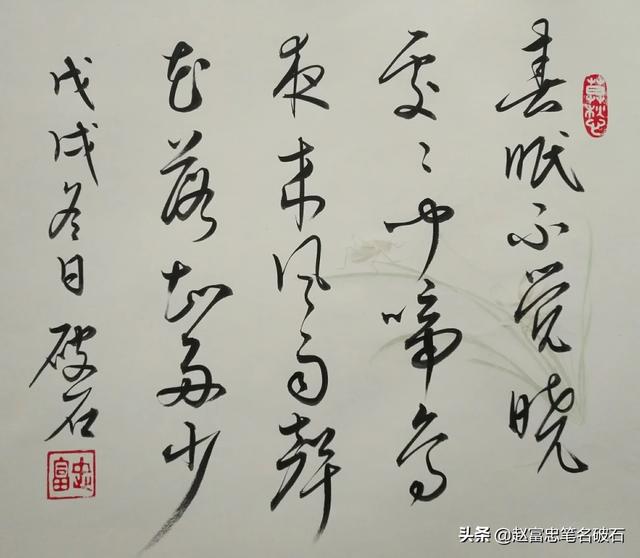 春眠不觉晓
处〻闻啼鸟
夜来风雨声
花落知多少
戊戌冬日 破石
富忠
头条 @赵富忠笔名破石